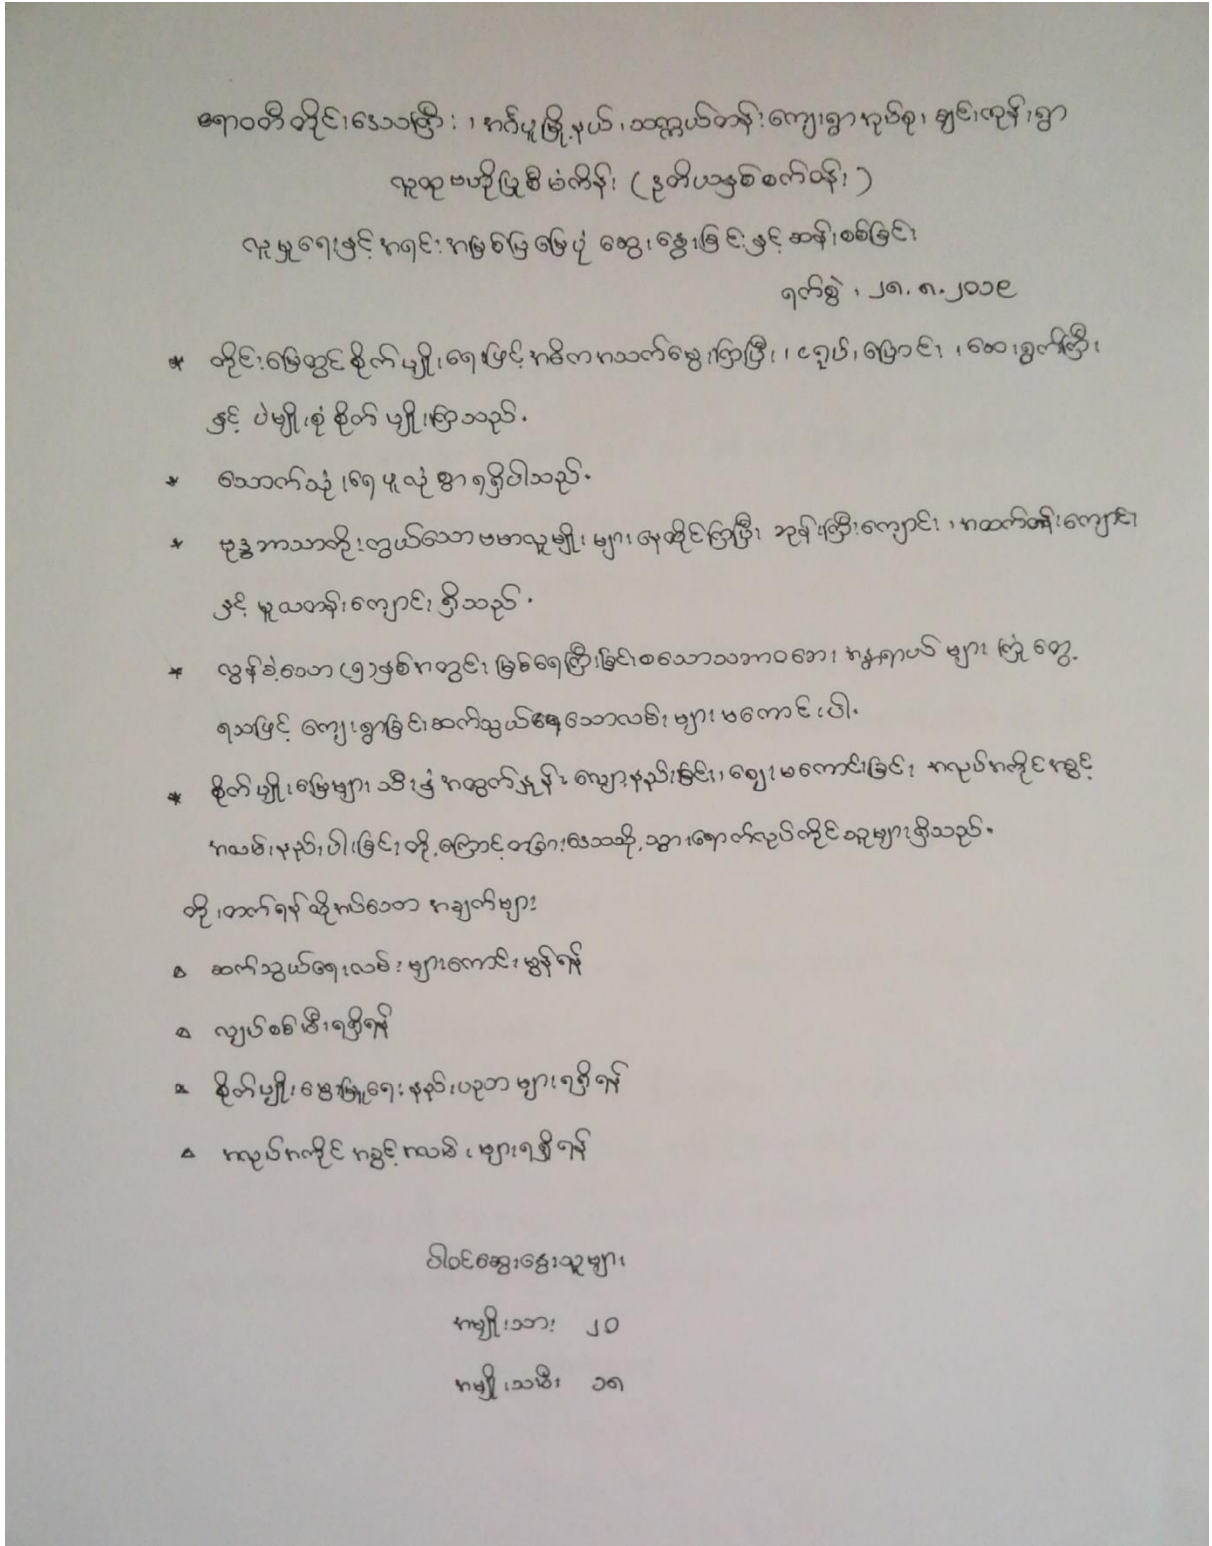 ဧရာဝတီတိုင်းဒေသကြီး၊ အင်္ဂပူမြို့နယ်၊ သက္ကယ်တန်းကျေးရွာအုပ်စု၊ ချင်းကုန်းရွာ
လူထုဗဟိုပြုစီမံကိန်း (ဒုတိယနှစ်စက်ဝန်း)
လူမှုရေးနှင့်အရင်းအမြစ်ပြမြေပုံ ဆွေးနွေးခြင်းနှင့်ဆန်းစစ်ခြင်း
ရက်စွဲ ၊ ၂၈.၈.၂၀၁၉
* တိုင်းမြေတွင်စိုက်ပျိုးရေးဖြင့်အဓိကအသက်မွေးကြပြီး၊ ငရုပ်၊ ပြောင်း ၊ ဆေးရွက်ကြီး
နှင့် ပဲမျိုးစုံစိုက်ပျိုးကြသည်။
* သောက်သုံးရေဖူလုံစွာရရှိပါသည်။
* ဗုဒ္ဓဘာသာကိုးကွယ်သောဗမာလူမျိုးများနေထိုင်ကြပြီး ဘုန်းကြီးကျောင်း ၊ အထက်တန်းကျောင်း
နှင့် မူလတန်းကျောင်းရှိသည်။
* လွန်ခဲ့သော (၅)နှစ်အတွင်း မြစ်ရေကြီးခြင်းစသောသဘာဝဘေး အန္တရာယ်များ ကြုံတွေ့
ရသဖြင့် ကျေးရွာခြင်းဆက်သွယ်နေသောလမ်းများမကောင်းပါ။
* စိုက်ပျိုးမြေများသီးနှံအထွက်နှုန်းလျော့နည်းခြင်း၊ ဈေးမကောင်းခြင်း အလုပ်အကိုင်အခွင့်
အလမ်းနည်းပါးခြင်းတို့ကြောင့်တခြားဒေသသို့သွားရောက်လုပ်ကိုင်သူများရှိသည်။
တိုးတက်ရန်လိုအပ်သော အချက်များ
▵ ဆက်သွယ်ရေးလမ်းများကောင်းမွန်ရန်
▵ လျှပ်စစ်မီးရရှိရန်
▵ စိုက်ပျိုးမွေးမြူရေးနည်းပညာများရရှိရန်
▵ အလုပ်အကိုင်အခွင့်အလမ်းများရရှိရန်
ပါဝင်ဆွေးနွေးသူများ
အမျိုးသား ၂၀
အမျိုးသမီး ၁၈